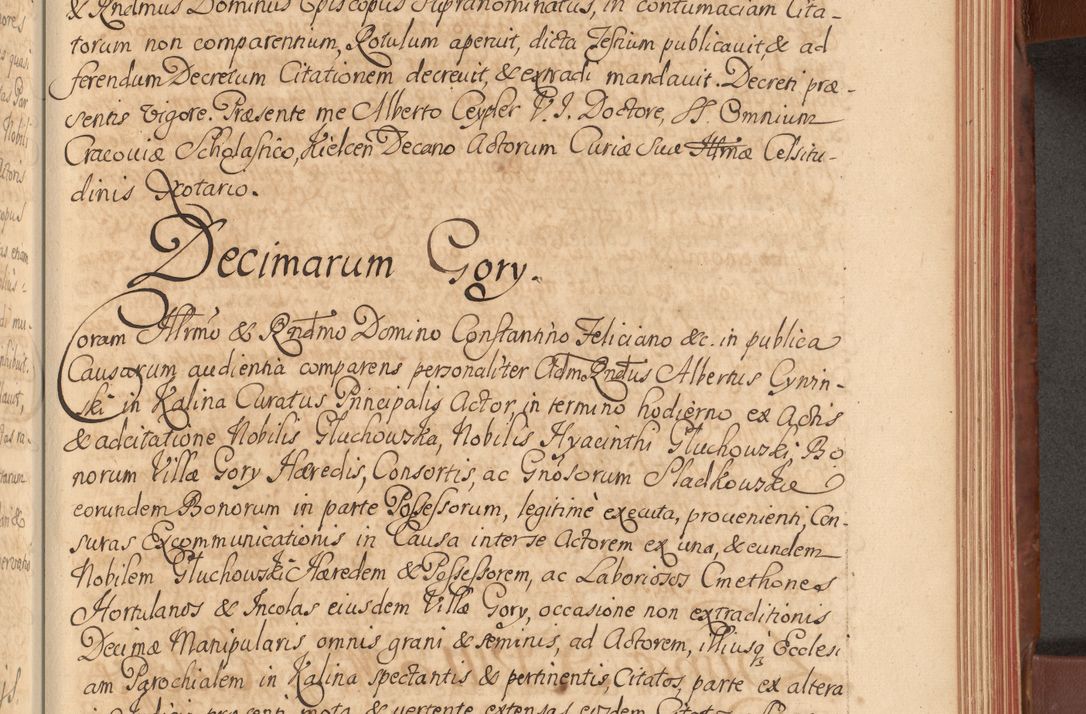 & Rndmus Dominus Episcopus supranominatus, in contumaciam Cita-
torum non comparentium, Rotulum aperuit, dicta Testium publicauit, & ad
ferendum Decretum Citationem decreuit, & extradi mandauit. Decreti præ-
sentis vigore. Præsente me Alberto Ceypler V. J. Doctore, SS. Omnium
Cracouiæ Scholastico, Kielcen Decano Actorum Curiæ Suæ Celsitu-
dinis Notario.
Decimarum Gory.
Coram Illrmo & Rndmo Domino Constantino Feliciano &c. in publica
Causarum audientia comparens personaliter Adm. Rndus Albertus Cynin-
ski in Kalina Curatus Principalis Actor, in termino hodierno ex Actis
& adcitatione Nobilis Gluchowska, Nobilis Hyacinthi Gluchowski, Bo
norum Villæ Gory Hæredis, Consortis, ac Gnosorum Sladkowskie
eorundem Bonorum in parte Possessorum, legitimè executa, proueniente, Con-
suras Excommunicationis in Causa inter se Actorem ex una, & eundem
Nobilem Gluchowski Hæredem & Possessorem, ac Laboriosos Cmethones
Hortulanos & Incolas eiusdem Villæ Gory, occasione non extraditionis
Decimæ Manipularis omnis grani & seminis, ad Actorem, illiusq Ecclesi
am Parochialem in Kalina spectantis & pertinentis, Citatos, parte ex altera
mota & vertente extensas eisdem